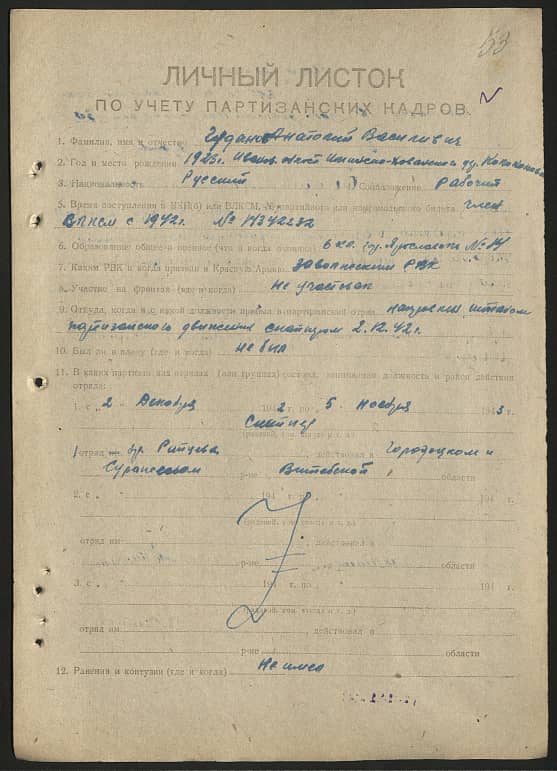 53
ЛИЧНЫЙ ЛИСТОК
ПО УЧЕТУ ПАРТИЗАНСКИХ КАДРОВ
1. Фамилия, имя и отчество Анатолий Василевич
2. Год и место рождения 1923г. Иванов. област
3. Национальность Русский Соцположение Рабочий
5. Время поступления в ВКП(б) или ВЛКСМ, № партийного или комсомольского билета член
ВЛКСМ с 1942г. №
6. Образование общее и военное (что и когда окончил) 6 кл. Ярославль № 14
7. Каким РВК и когда призван в Красную Армию Заволжский РВК
8. Участие на фронтах (где и когда) Не участвовал
9. Откуда, когда и с какой должности прибыл в партизанский отряд направлен штабом
партизанского движения снайпером 2.12.42г.
10. Был ли в плену (где и когда) не был
11. В каких партизанских отрядах (или группах) состоял, занимаемая должность и район действия
отряда:
1. с 2 Декабря 1942 г. по 5 Ноября 1943 г.
Снайпер
(рядовой, ком. взвода и т. д.)
1 отряд бр. Райцева, действовал в Городоцком и
Суражском р-не Витебской области
2. с 194 г. по 194 г.
(рядовой, ком. взвода и т. д.)
отряд им. , действовал в
р-не области
3. с 194 г. по 194 г.
(рядовой, ком. взвода и т. д.)
отряд им. , действовал в
р-не области
12. Ранения и контузии (где и когда) Не имел